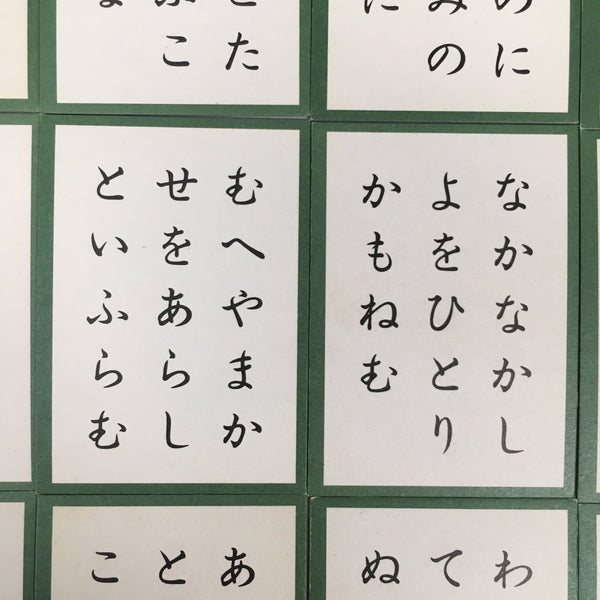 のに
みの
に
た
こ
なかなかし
よをひとり
かもねむ
むへやまか
せをあらし
といふらむ
わ
て
ぬ
あ
と
こ